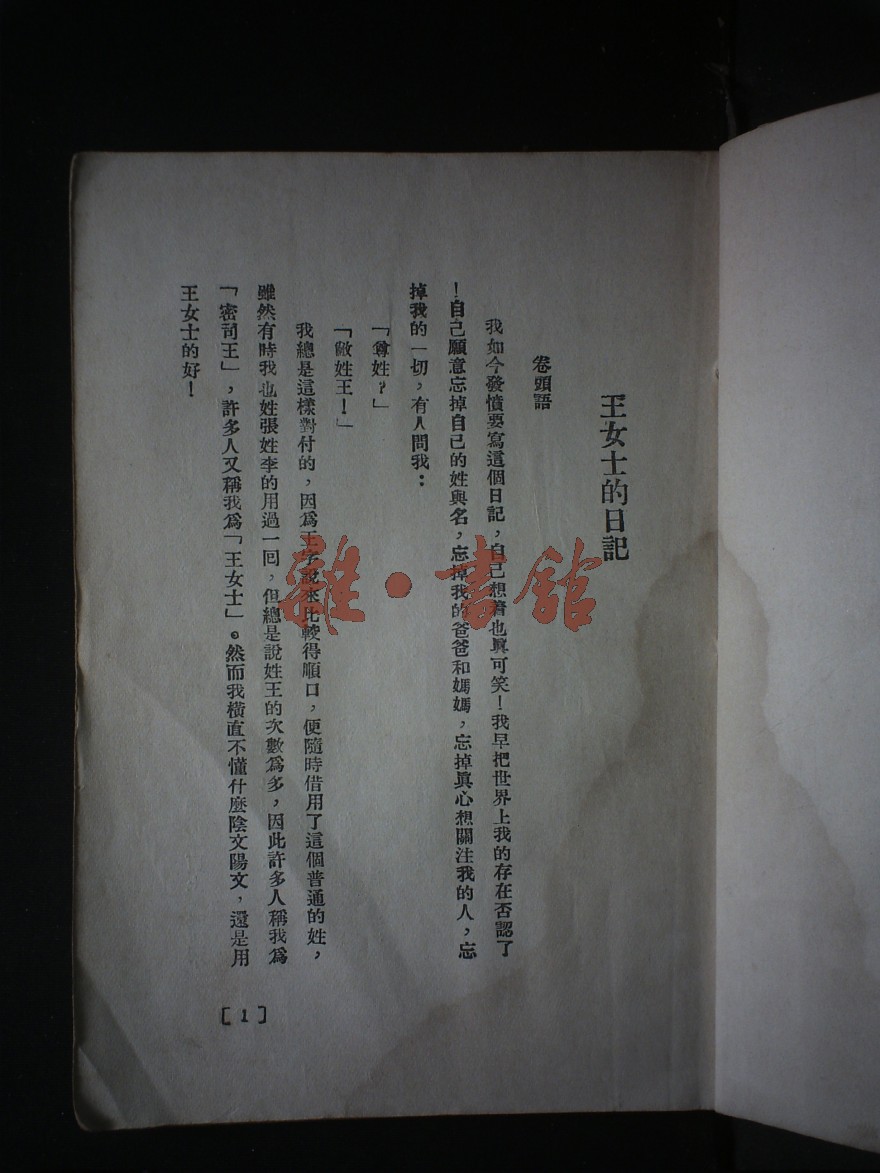 王女士的日記
卷頭語
我如今發憤要寫這個日記，自己想着也眞可笑！我早把世界上我的存在否認了
！自己願意忘掉自己的姓與名，忘掉我的爸爸和媽媽，忘掉眞心想關注我的人，忘
掉我的一切，有人問我：
「尊姓？」
「敝姓王！」
我總是這樣對付的，因爲王字說來比較得順口，便隨時借用了這個普通的姓，
雖然有時我也姓張姓李的用過一囘，但總是說姓王的次數爲多，因此許多人稱我爲
「密司王」，許多人又稱我爲「王女士」。然而我橫直不懂什麼陰文陽文，還是用
王女士的好！
[1]
雜·書館